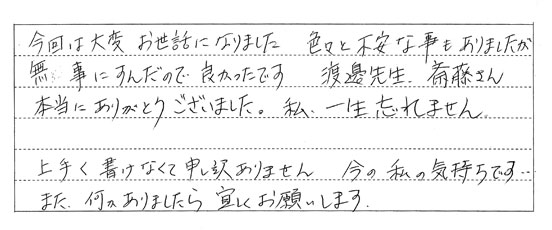 今回は大変 お世話になりました 色々と不安な事もありましたが
無事にすんだので良かったです 渡邊先生、斎藤さん
本当にありがとうございました。私、一生忘れません。
上手く書けなくて申し訳ありません 今の私の気持ちです‥
また、何かありましたら宜しくお願いします.